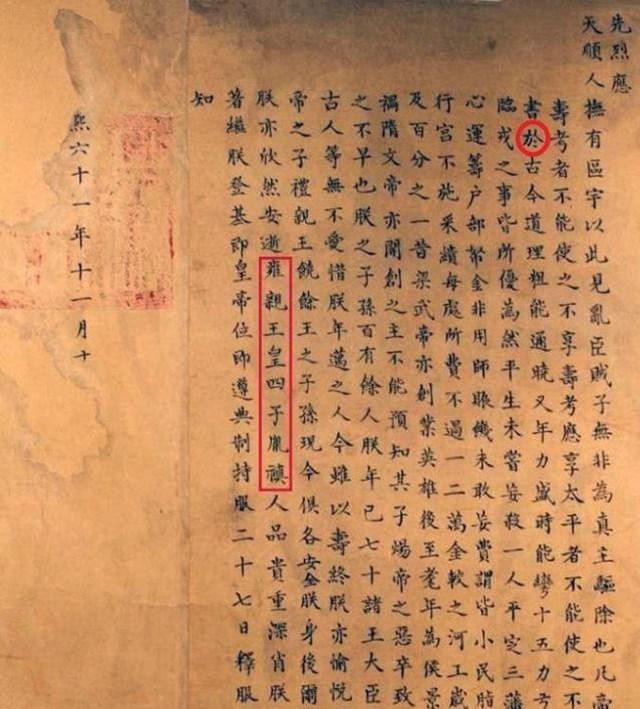 先烈應
天順人撫有區宇以此見亂臣賊子無非為真主驅除也凡帝
壽考者不能使之不享壽考應享太平者不能使之不
書於古今道理粗能通曉又年力盛時能彎十五力弓
臨戎之事皆所優為然平生未嘗妄殺一人平定三藩
心運籌戶部帑金非用師賑饑未敢妄費謂皆小民脂
行宮不施采繢每處所費不過一二萬金較之河工歲
及百分之一昔梁武帝亦創業英雄後至耄年為侯景
禍隋文帝亦開創之主不能預知其子煬帝之惡卒致
之不早也朕之子孫百有餘人朕年已七十諸王大臣
古人等無不愛惜朕年邁之人今雖以壽終朕亦愉悅
帝之子禮親王饒餘王之子孫現今俱各安全朕身後爾
朕亦欣然安逝雍親王皇四子胤禛人品貴重深肖朕
著繼朕登基即皇帝位即遵典制持服二十七日釋服
知
熙六十一年十一月十